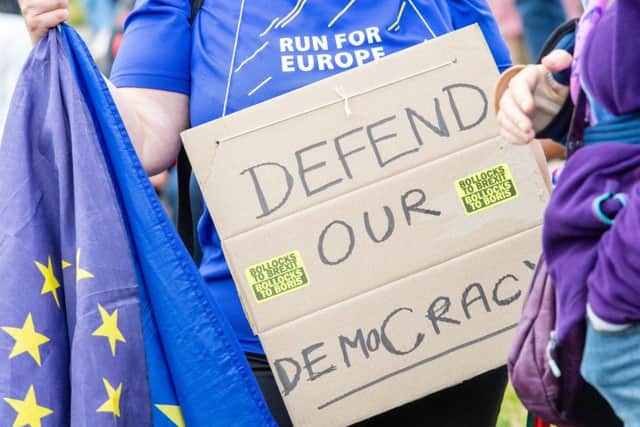 RUN FOR
EUROPE
DEFEND
OUR
DEMOCRACY
BOLLOCKS
TO BREXIT
BOLLOCKS
TO BORIS
BOLLOCKS
TO BREXIT
BOLLOCKS
TO BORIS